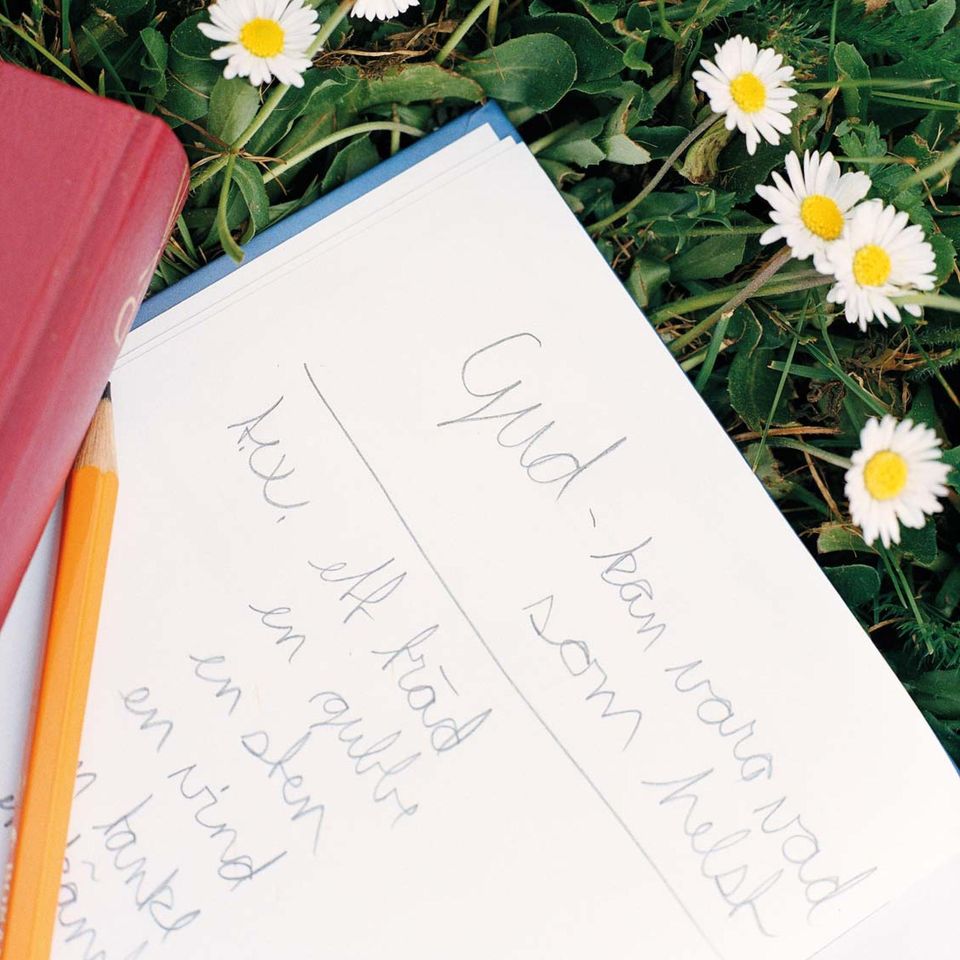 Gud - kan vara vad
som helst
t.ex. ett träd
en gubbe
en sten
en vind
n tanke